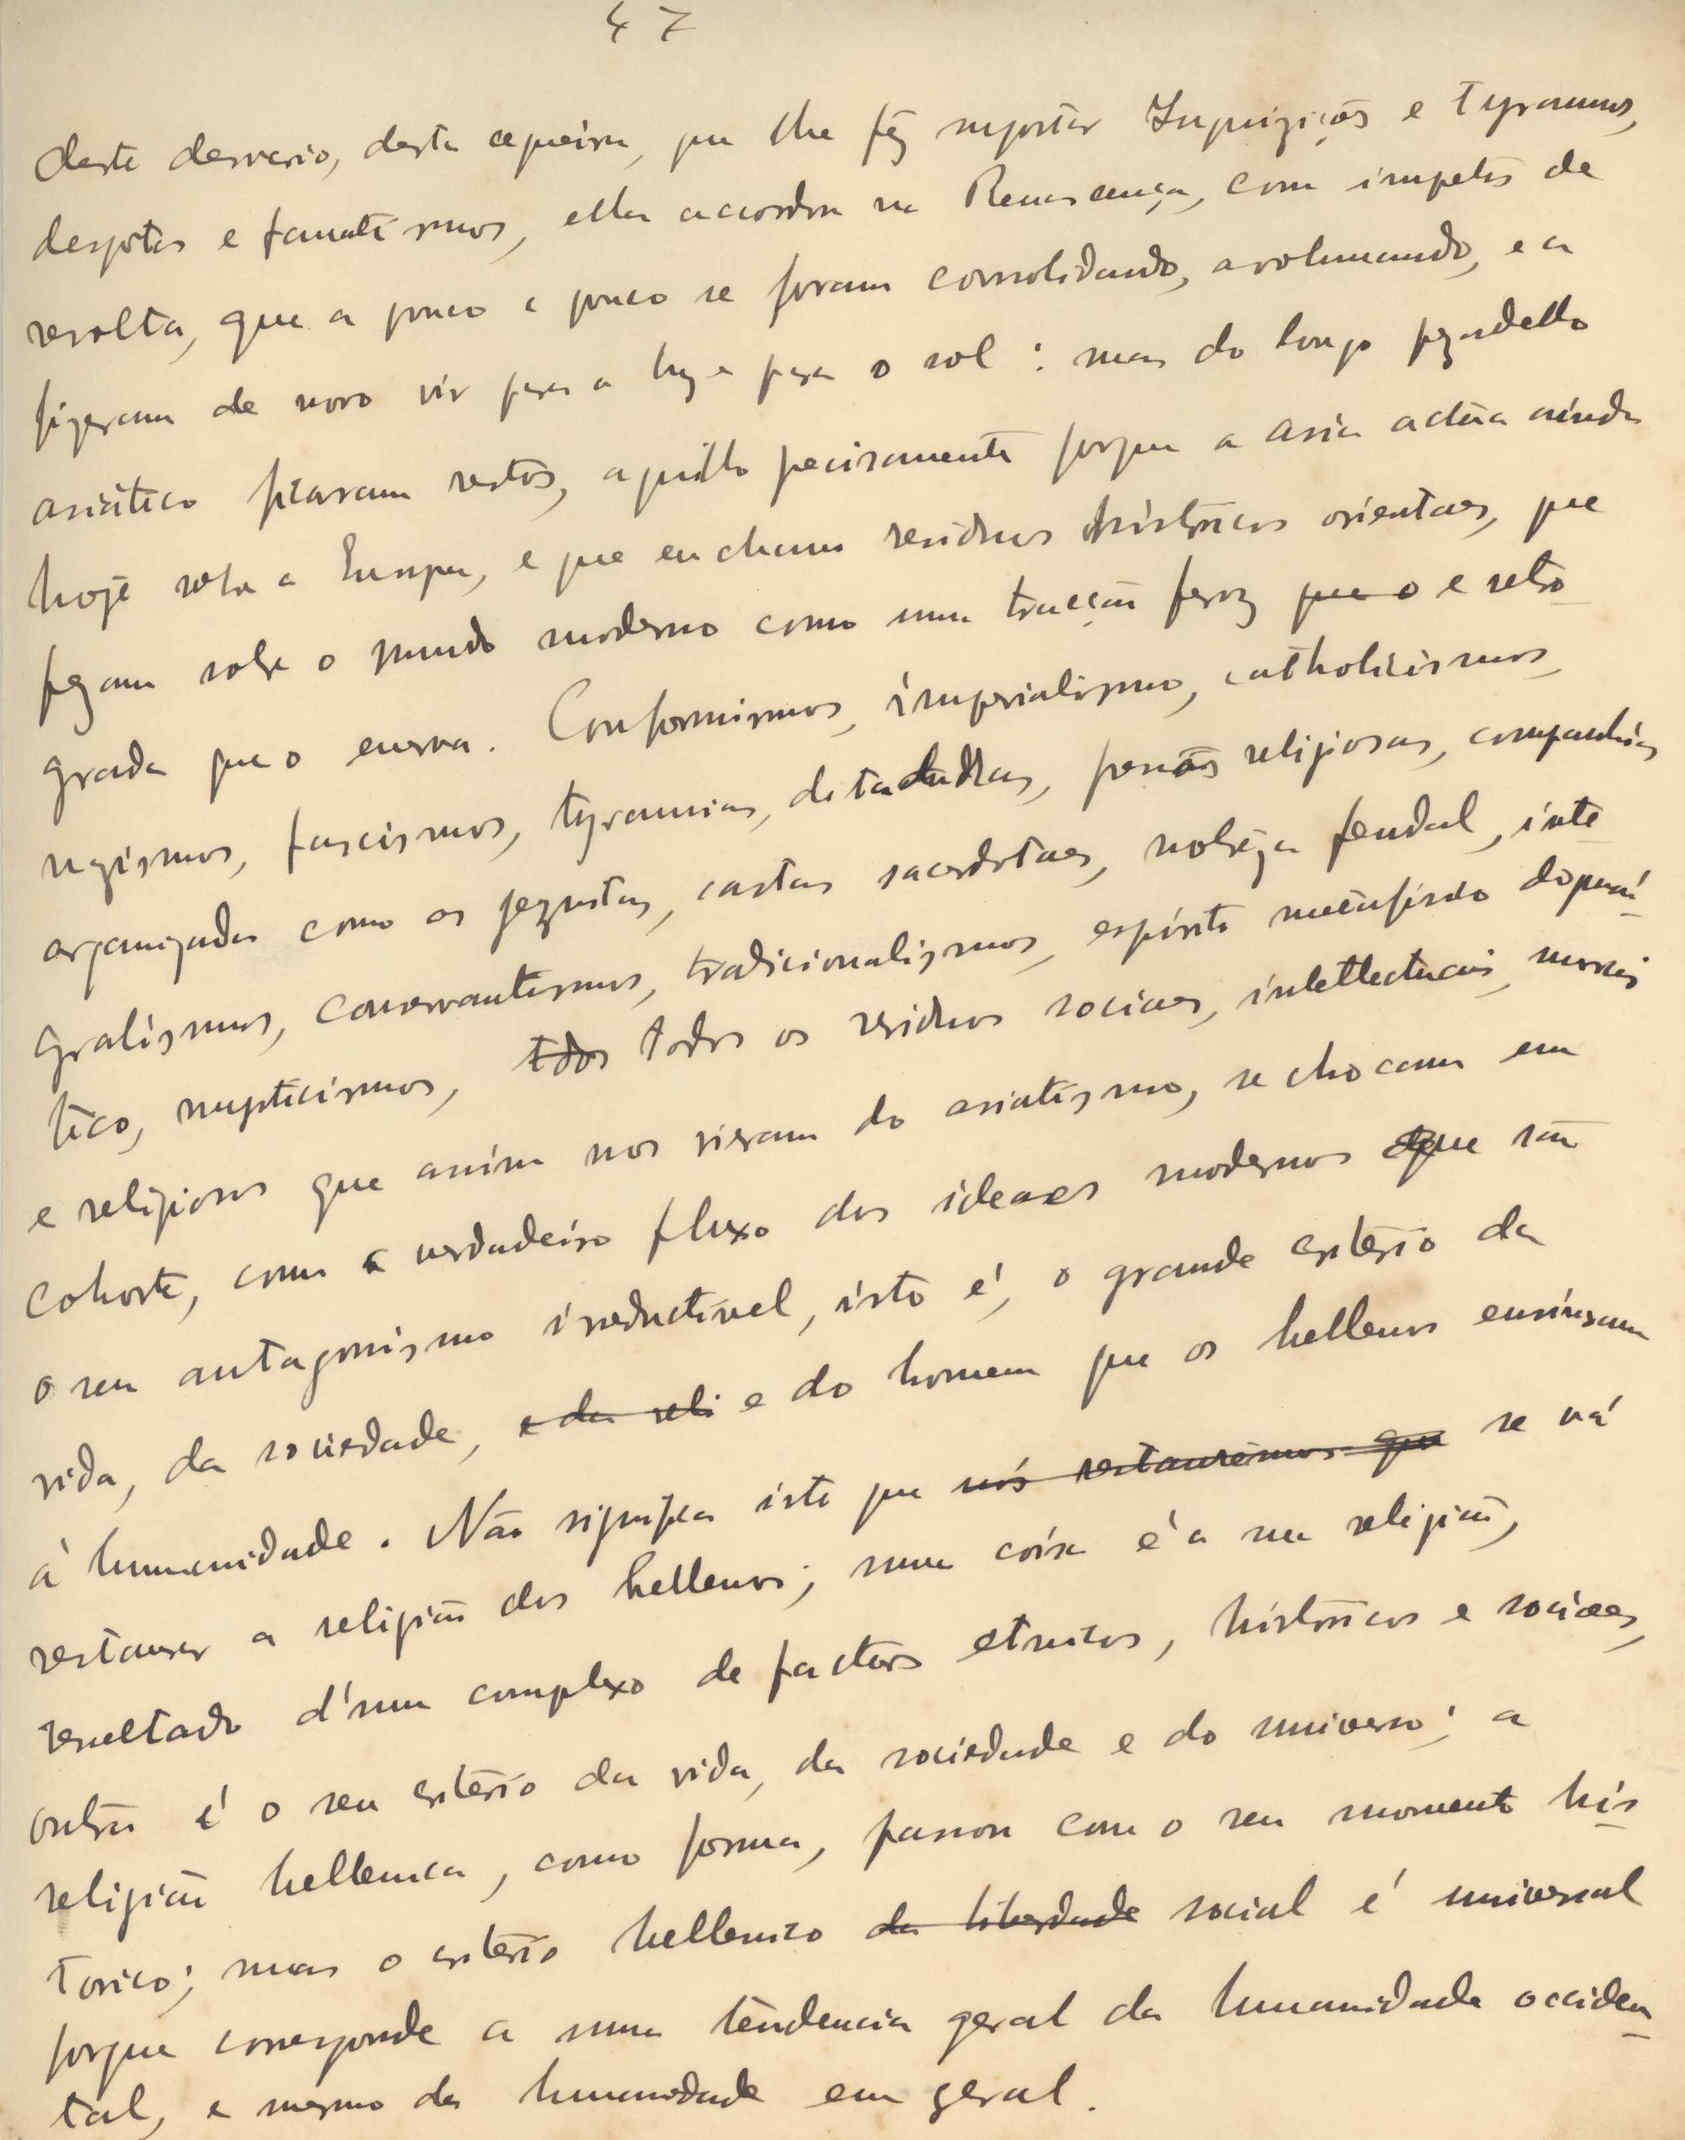 47
deste desvario, desta cegueira, que lhe fêz suportar Inquizições e Tyrannos,
despotas e fanatismos, ella accordou na Renascença, com impetos de
revolta, que a pouco e pouco se foram consolidando, avolumando, e a
fizeram de novo vir para a luz e para o sol: mas do longo pezadello
asiático ficaram restos, aquillo precisamente porque a Asia actúa ainda
hoje sobre a Europa, e que se chama residuos históricos orientaes, que
pezam sobre o mundo moderno como uma tracção feroz ~~que o~~ e retró-
grada que o enerva. Conformismos, imperialismo, catholicismos,
nazismos, fascismos, tyrannias, ditaduras, fenãs religiosas, companhias
organizadas como os jezuitas, castas sacerdotaes, nobreza feudal, inte-
gralismos, conservantismos, tradicionalismos, espírito metafísico dogmá-
tico, mysticismos, ~~tdos~~ todos os residuos sociaes, intellectuais, moraes
e religiosos que assim nos vieram do asiatismo, se chocam em
cohorte, com o verdadeiro fluxo dos ideaes modernos que são
o seu antagonismo irreductivel, isto é, o grande critério da
vida, da sociedade, ~~e da reli~~ e do homem que os hellenos ensinaram
à humanidade. Não significa isto que ~~nós restauremos que~~ se vá
restaurar a religião dos hellenos; uma coisa é a sua religião,
resultado d'um complexo de factores etnicos, históricos e sociaes,
outra é o seu critério da vida, da sociedade e do universo; a
religião hellenica, como forma, passou com o seu momento his-
torico; mas o critério hellenico ~~da liberdade~~ social é universal
porque corresponde a uma tendencia geral da humanidade occiden-
tal, e mesmo da humanidade em geral.